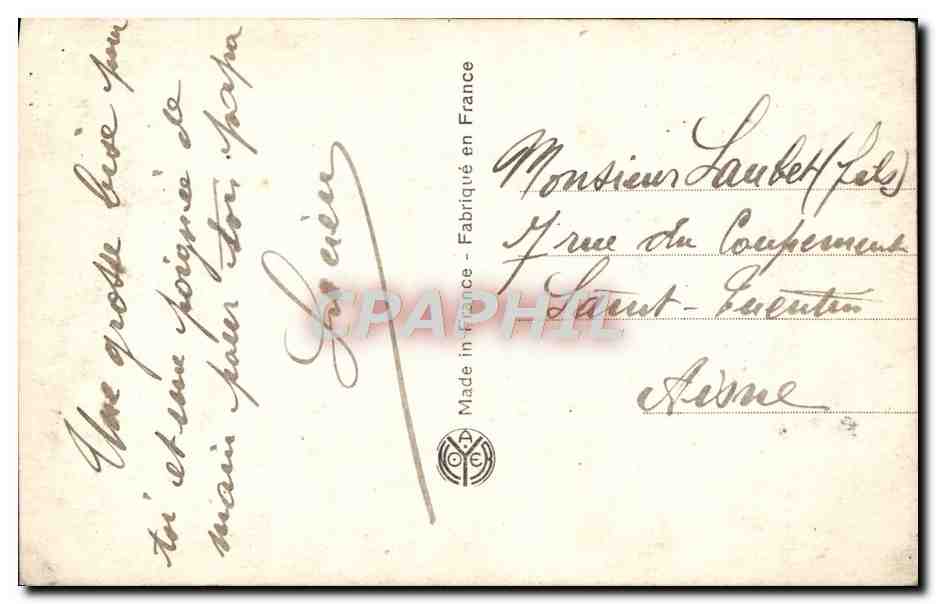 Une grosse bise pour
toi et une poignée de
main pour ton papa
Lucien
Made in France - Fabriqué en France
A. NOYER
Monsieur Laubet (fils)
7 rue du Coupement
Saint-Quentin
Aisne
CPAPHIL